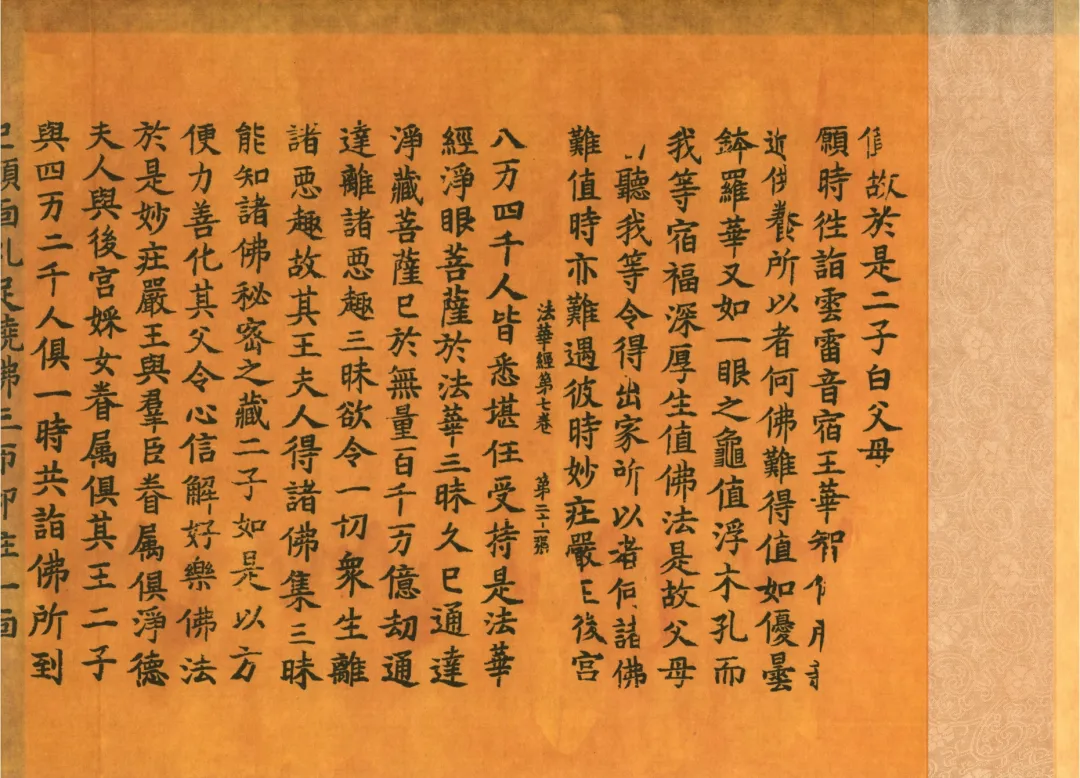 故於是二子白父母
願時徃詣雲雷音宿王華智
近供養所以者何佛難得值如優曇
鉢羅華又如一眼之龜值浮木孔而
我等宿福深厚生值佛法是故父母
聽我等令得出家所以者何諸佛
難值時亦難遇彼時妙庄嚴王後宮
法華經第七卷 第二十一張
八万四千人皆悉堪任受持是法華
經淨眼菩薩於法華三昧久已通達
淨藏菩薩已於無量百千万億劫通
達離諸惡趣三昧欲令一切衆生離
諸惡趣故其王夫人得諸佛集三昧
能知諸佛秘密之藏二子如是以方
便力善化其父令心信解好樂佛法
於是妙庄嚴王與羣臣眷属俱淨德
夫人與後宮婇女眷属俱其王二子
與四万二千人俱一時共詣佛所到
頭面礼足繞佛三帀却住一面